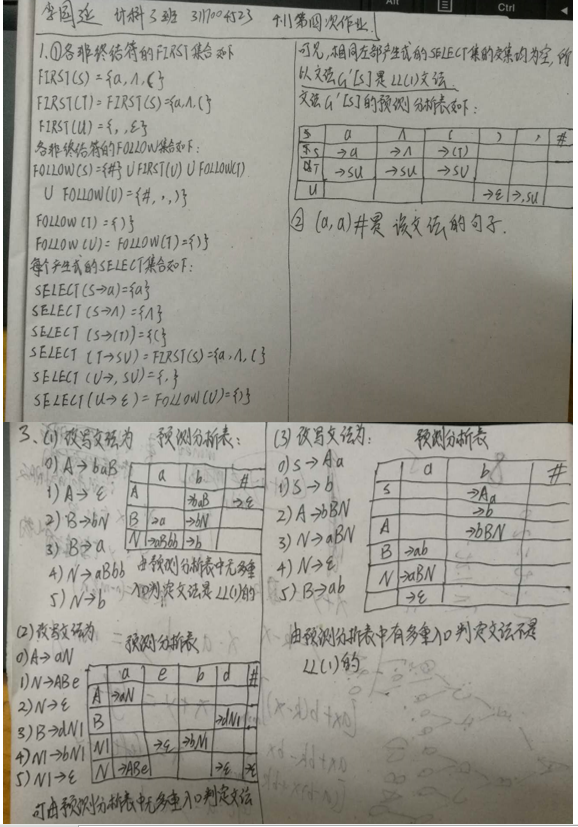 计科3班 3117004523 第四次作业
1.①各非终结符的FIRST集合如下
FIRST(S)={a,Λ,(}
FIRST(T)=FIRST(S)={a,Λ,(}
FIRST(U)={,,ε}
各非终结符的FOLLOW集合如下:
FOLLOW(S)={#}∪FIRST(U)∪FOLLOW(T)
∪FOLLOW(U)={#,,,)}
FOLLOW(T)={)}
FOLLOW(U)=FOLLOW(T)={)}
每个产生式的SELECT集合如下:
SELECT(S→a)={a}
SELECT(S→Λ)={Λ}
SELECT(S→(T))={(}
SELECT(T→SU)=FIRST(S)={a,Λ,(}
SELECT(U→,SU)={,}
SELECT(U→ε)=FOLLOW(U)={)}
可见,相同左部产生式的SELECT集的交集均为空,所
以文法G'[S]是LL(1)文法
文法G'[S]的预测分析表如下:
S a Λ ( ) , #
S →a →Λ →(T)
T →SU →SU →SU
U →ε →,SU
② (a,a)#是该文法的句子.
3.(1)改写文法为 预测分析表:
0) A→baB
1) A→ε
2) B→bN
3) B→a
4) N→aBbb
5) N→b
a b #
A →baB →ε
B →a →bN
N →aBbb →b
由预测分析表中无多重
入口判定文法是LL(1)的
(2)改写文法为 预测分析表
0) A→aN
1) N→ABe
2) N→ε
3) B→dN1
4) N1→bN1
5) N1→ε
a e b d #
A →aN
B →dN1
N1 →ε →bN1
N →ABe →ε →ε
可由预测分析表中无多重入口判定文法
(3)改写文法为: 预测分析表
0) S→Aa
1) S→b
2) A→bBN
3) N→aBN
4) N→ε
5) B→ab
a b #
S →Aa
→b
A →bBN
B →ab
N →aBN
→ε
由预测分析表中有多重入口判定文法不是
LL(1)的